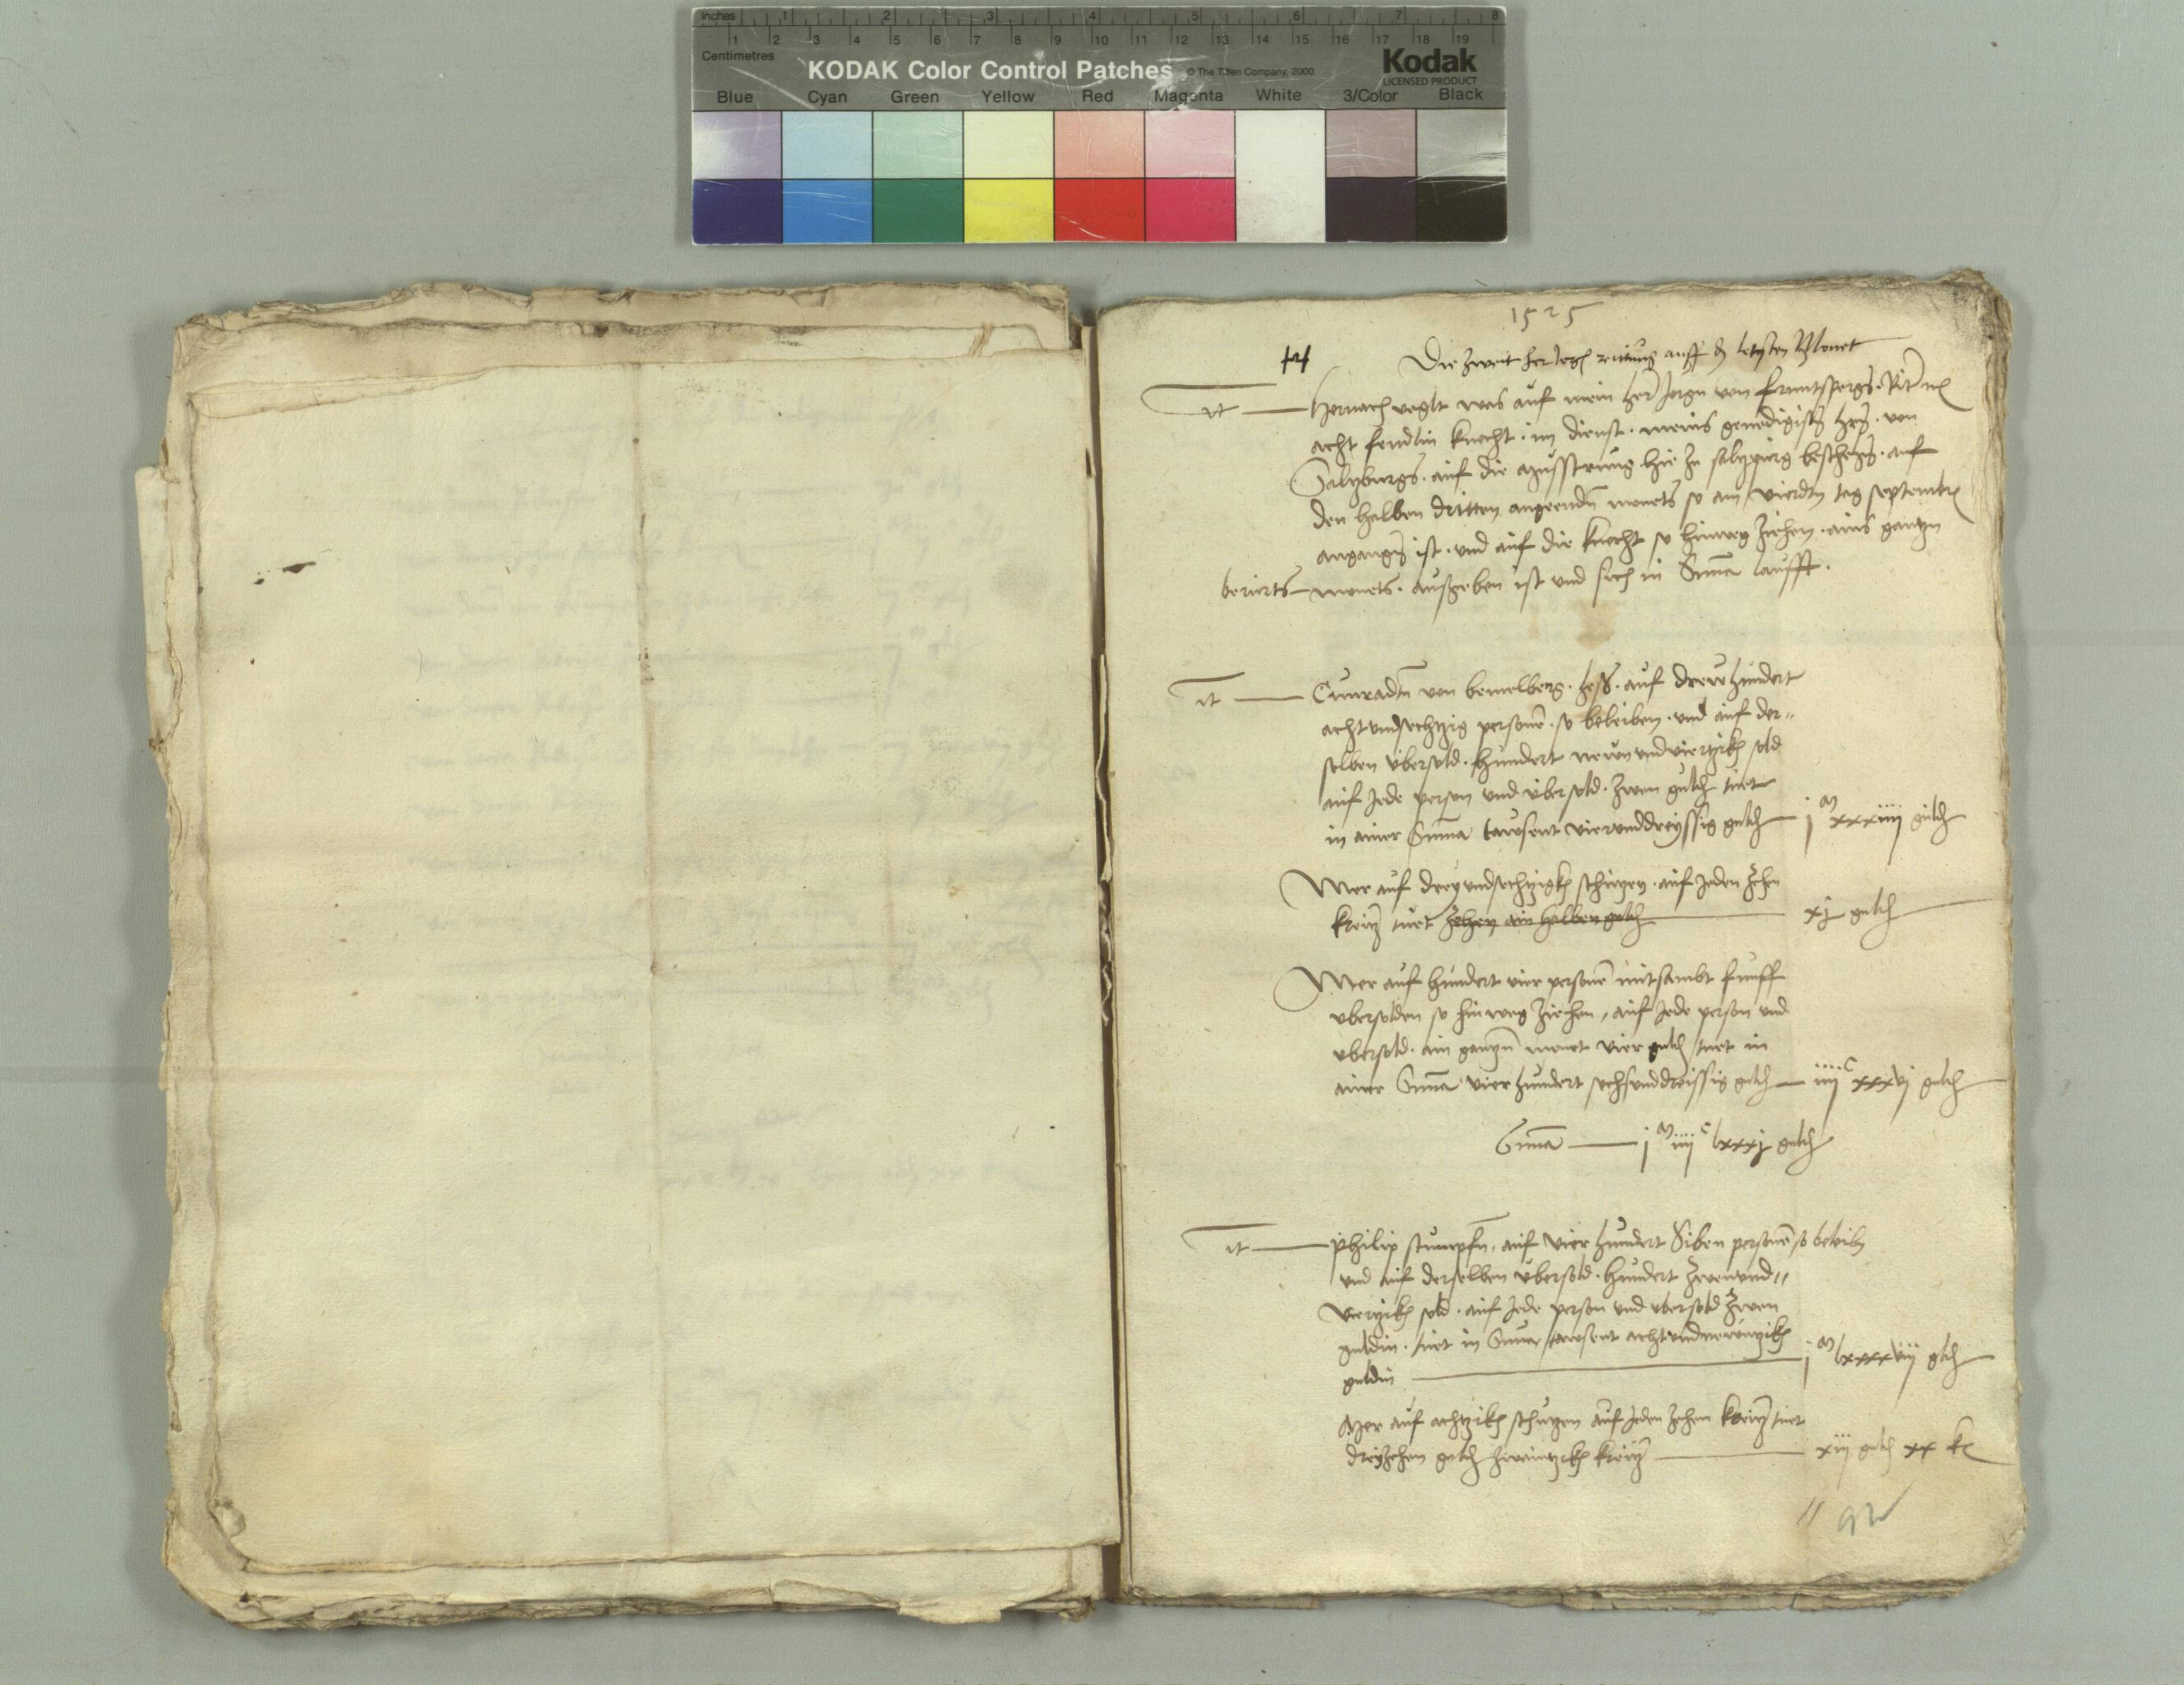 Inches 1 2 3 4 5 6 7 8
Centimetres 1 2 3 4 5 6 7 8 9 10 11 12 13 14 15 16 17 18 19
KODAK Color Control Patches © The Tiffen Company, 2000 Kodak
LICENSED PRODUCT
Blue Cyan Green Yellow Red Magenta White 3/Color Black
1525
Die zweit auff letzsten Monet
It Hernach volgt was auf mein her Jorgn von Fruntsperg Rit
acht fendlin knecht im dienst meins genedigisten von
Salzburgs auf die hie zu beschehen auf
den halben dritten angeenden monets so am vierdtn tag septembr
angangen ist und auf die knecht so hinweg ziehen ains gantzn
berierts monets ausgeben ist und sich in Suma laufft
It Cunradtn von bemelberg hess auf drewhundert
achtundsechtzig personen so beleiben und auf der
selben ubersold hundert newnundviertzikh sold
auf jede person und ubersold zwen guld tuet
in ainer Suma tawsent vierunddreyssig guld j M xxxiiij guld
Mer auf dreyundsechtzigkh schützen auf jeden zehn
kreitz tuet zehen ain halben guld xj guld
Mer auf hundert vier personen mitsambt funff
ubersolden so hinweg ziehen auf jede person und
ubersold ain gantzn monet vier guld tuet in
ainer Suma vierhundert sechsunddreissig guld iiij C xxxvj guld
Suma j M iiij C lxxxj guld
It Philip stumpfn auf vierhundert Siben personen so beleibn
und auf derselben ubersold hundert zwenund
viertzikh sold auf jede person und ubersold zwen
guldin tuet in Suma tawsent achtundnewntzikh
guldin j M lxxxxviij guld
Mer auf achtzikh schutzen auf jeden zehen kreitz tuet
dreyzehen guld zwaintzikh kreitz xiij guld xx k